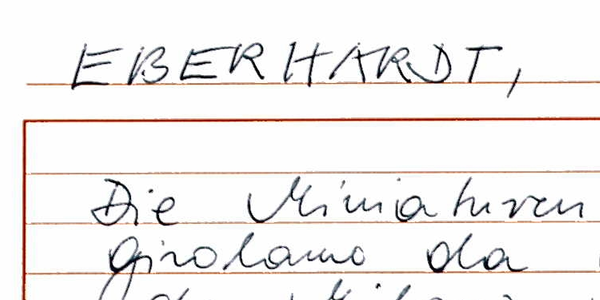 EBERHARDT,
Die Miniaturen
Girolamo da